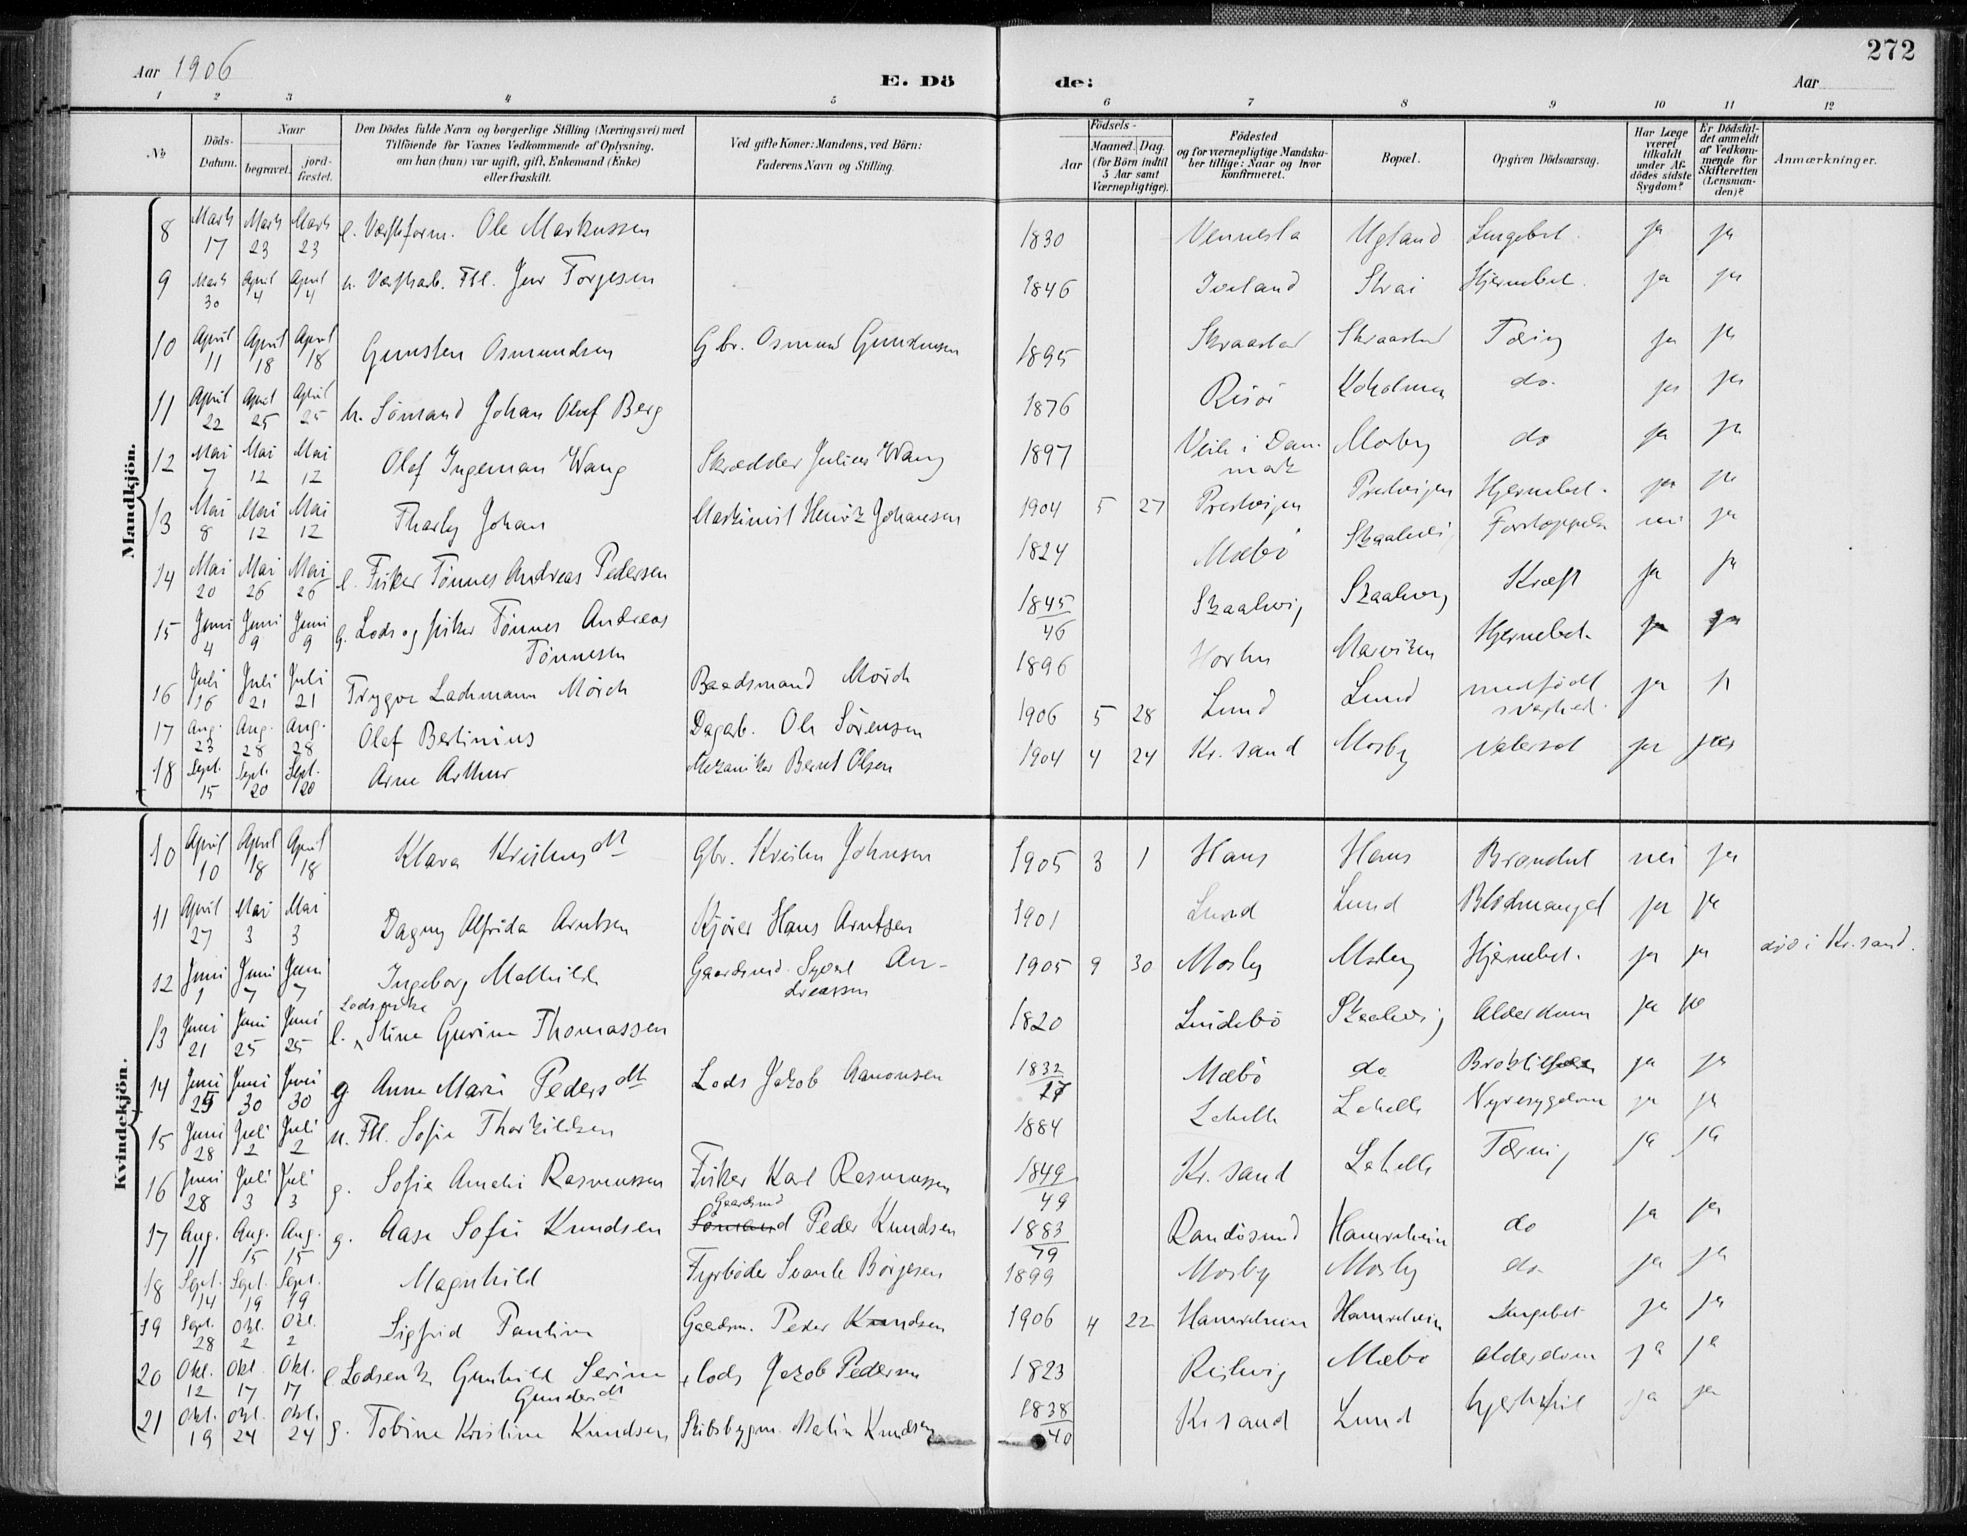 272
Aar 1906
E. Dö
de:
Aar
1 2 3 4 5 6 7 8 9 10 11 12
No.
Döds-Datum.
Naar
begravet.
jord-fæstet.
Den Dödes fulde Navn og borgerlige Stilling (Næringsvei) med
Tilföiende for Voxnes Vedkommende af Oplysning,
om han (hun) var ugift, gift, Enkemand (Enke)
eller fraskilt.
Ved gifte Koner: Mandens, ved Börn:
Faderens Navn og Stilling.
Födsels-
Aar
Maaned. Dag.
(for Börn indtil
5 Aar samt
Værnepligtige).
Födested
og for værnepligtige Mandska-
ber tillige: Naar og hvor
konfirmeret.
Bopæl.
Opgiven Dödsaarsag.
Har Læge
været
tilkaldt
under Af-
dödes sidste
Sygdom?
Er Dödsfal-
det anmeldt
af Vedkom-
mende for
Skifteretten
(Lensman-
den)?
Anmærkninger.
Mandkjön.
8 Marts 17 Marts 23 Marts 23 e. Værftsform. Ole Markussen 1830 Vennesla Ugland Lungebet. ja ja
9 Marts 30 April 4 April 4 u. Værftsarb. Fttl. Jens Torgesen 1846 Iveland Strai Hjernebet. ja ja
10 April 11 April 18 April 18 Gunsten Osmundsen Gbr. Osmund Gundersen 1895 Skraastad Skraastad Tæring ja ja
11 April 22 April 25 April 25 u. Sömand Johan Oluf Berg 1876 Risör Kokolmen do. ja ja
12 Mai 7 Mai 12 Mai 12 Olaf Ingeman Wang Skrædder Julius Wang 1897 Veile i Dan-
mark Mosby do ja ja
13 Mai 8 Mai 12 Mai 12 Tharly Johan Maskinist Henrik Johansen 1904 5 27 Prestvigen Prestvigen Hjernebet. ja ja
14 Mai 20 Mai 26 Mai 26 e. Fisker Tönnes Andreas Pedersen 1824 Mæbö Skaalevig Forstoppelse nei ja
15 Juni 4 Juni 9 Juni 9 g. Lods og fisker Tönnes Andreas
Tönnesen 1845/46 Skaalevig Skaalevig Kræft ja ja
16 Juli 16 Juli 21 Juli 21 Trygve Lachmann Mörch Baadsmand Mörch 1896 Horten Marviken Hjernebet. ja ja
17 Aug. 23 Aug. 28 Aug. 28 Olaf Bertinius Dagarb. Ole Sörensen 1906 5 28 Lund Lund medfödt
svaghed. ja ja
18 Sept. 15 Sept. 20 Sept. 20 Arne Arthur Mekaniker Bernt Olsen 1904 4 24 Kr.sand Mosby Vatersot ja ja
Kvindekjön.
10 April 10 April 18 April 18 Klara Kristensdt Gbr. Kristen Johnsen 1905 3 1 Haus Haus Brandnt nei ja
11 April 27 Mai 3 Mai 3 Dagny Alfrida Arntsen Kjörer Hans Arntsen 1901 Lund Lund Blodmangel ja ja
12 Juni 1 Juni 7 Juni 7 Ingeborg Mathilde Gaardmd. Syvert An-
dreassen 1905 9 30 Mosby Mosby Hjernebet. ja ja död i Kr.sand.
13 Juni 21 Juni 25 Juni 25 e. Lodsenke Stine Gurine Thomassen 1820 Lindebö Skaalevig Alderdom ja ja
14 Juni 25 Juni 30 Juni 30 g. Anne Marie Pedersdt Lods Jakob Aanonsen 1832/17 Mæbö do ja ja
15 Juni 28 Juli 2 Juli 2 u. Fttl. Sofie Thorkildsen 1884 Lahelle Lahelle Nyresygdom ja ja
16 Juni 28 Juli 3 Juli 3 g. Sofie Amelie Rasmussen Fisker Karl Rasmussen 1849/49 Kr.sand Lahelle Tæring ja ja
17 Aug. 11 Aug. 15 Aug. 15 g. Aase Sofie Knudsen Gaardmd Sömand Peder Knudsen 1883/79 Randösund Hamrehein do ja ja
18 Sept. 14 Sept. 19 Sept. 19 Magnhild Fyrböder Svante Börgesen 1899 Mosby Mosby do ja ja
19 Sept. 28 Okt. 2 Okt. 2 Sigfrid Pauline Gaardm. Peder Knudsen 1906 4 22 Hamrehein Hamrehein Lungebet ja ja
20 Okt. 12 Okt. 17 Okt. 17 e. Lodsenke Gunhild Serine
Gundersdt Lods Jakob Pedersen 1823 Risvig Mæbö Alderdom ja ja
21 Okt. 19 Okt. 24 Okt. 24 g. Tobine Kristine Knudsen Skibsbygm. Matin Knudsen 1838/40 Kr.sand Lund hjertefeil ja ja